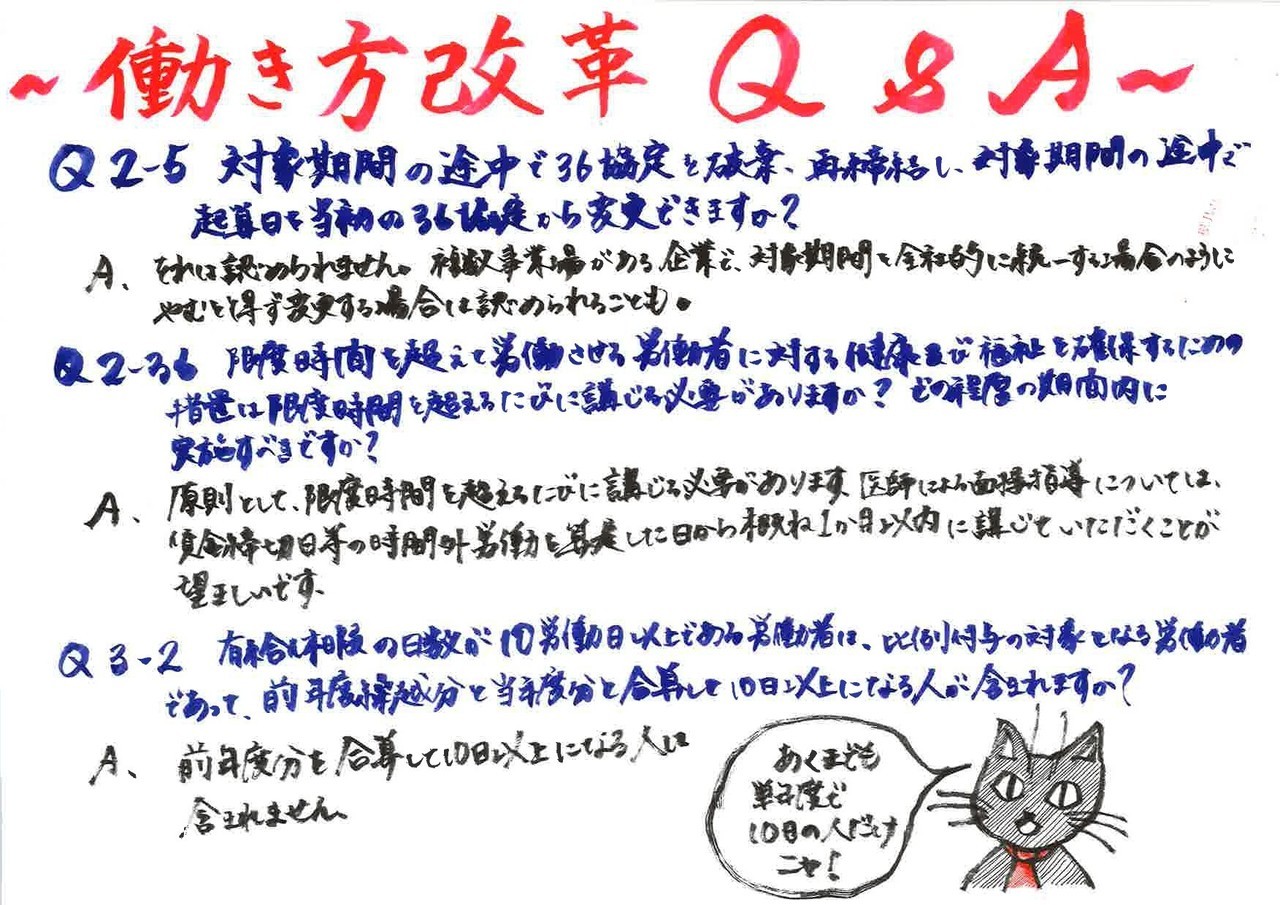 ~働き方改革 Q & A~
Q2-5 対象期間の途中で36協定を破棄、再締結し、対象期間の途中で
起算日を当初の36協定から変更できますか?
A、それは認められません。複数事業場がある企業で、対象期間を全社的に統一する場合のように
やむを得ず変更する場合は認められることも。
Q2-36 限度時間を超えて労働させる労働者に対する健康及び福祉を確保するための
措置は限度時間を超えるたびに講じる必要がありますか?どの程度の期間内に
実施すべきですか?
A、原則として、限度時間を超えるたびに講じる必要があります。医師による面接指導については、
賃金締切日等の時間外労働を算定した日から概ね1か月以内に講じていただくことが
望ましいです。
Q3-2 有給休暇の日数が10労働日以上である労働者は、比例付与の対象となる労働者
であって、前年度繰越分と当年度分と合算して10日以上になる人が含まれますか?
A、前年度分を合算して10日以上になる人は
含まれません。
あくまでも
単年度で
10日の人だけ
ニャ!